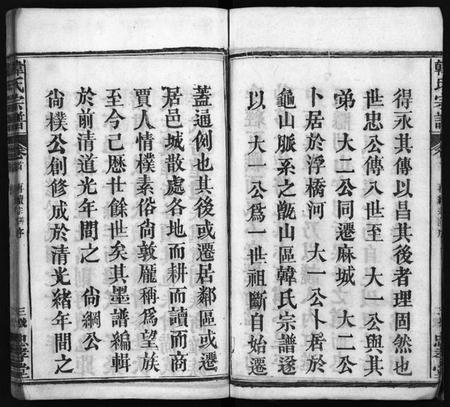 得永其傳以昌其後者理固然也
世忠公傳八世至 大一公與其
弟 大二公同遷麻城 大二公
卜居於浮橋河 大一公卜居於
龜山脈系之戧山區韓氏宗譜遂
以 大一公爲一世祖斷自始遷
蓋通例也其後或遷居鄰區或遷
居邑城散處各地而耕而讀而商
賈人情樸素俗尙敦龐稱爲望族
至今已歷廿餘世矣其墨譜編輯
於前清道光年間之 尙綱公
尙樸公創修成於清光緒年間之
韓氏宗譜
卷首
三號